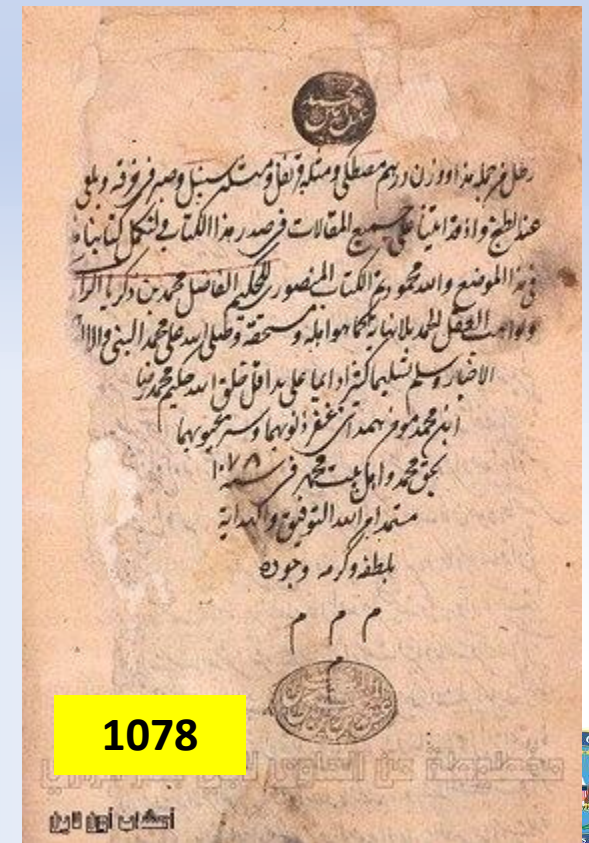 رطل من جملة هذا ووزن درهم مصطكى ومثله قرنفل ومثله سنبل وصير فى خرقة ويلقى
عند الطبخ واذ قد اتينا على جميع المقالات فى صدر هذا الكتاب فلنكمل كتابنا
فى هذا الموضع والله محمود تم الكتاب المنصورى للحكيم الفاضل محمد بن زكريا الرازى
ولواهب العقل الحمد بلا نهاية كما هو اهله ومستحقه وصلى الله على محمد النبى واله
الاخيار وسلم تسليما كثيرا دايما على يد اقل خلق الله حكيم محمد رضا
ابن محمد مومن همدانى غفر ذنوبهما وستر عيوبهما
بحق محمد واهل بيت محمد فى سنه ١٠٧٨
مستمدا من الله التوفيق والهداية
بلطفه وكرمه وجوده
م م م
م
1078
مخطوطة من الحاوي لأبي بكر الرازي
أعشاب أون لاين